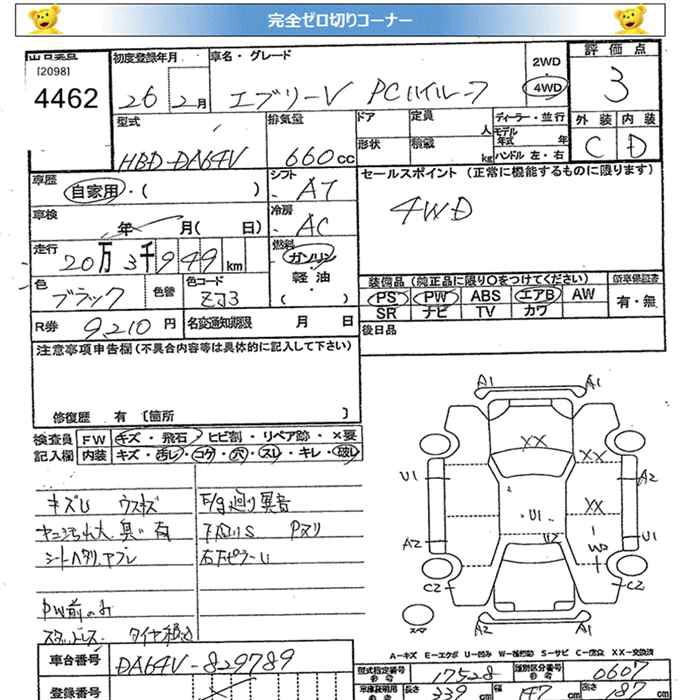 完全ゼロ切りコーナー
[2098]
4462
初度登録年月
26 2月
車名・グレード
エブリーV PCハイルーフ
2WD
4WD
評価点
3
型式
HBD-DA64V
排気量
660cc
ドア
定員
人
形状
積載
kg
ディーラー・並行
モデル年式 年
ハンドル 左・右
外装 内装
C D
車歴
自家用・( )
シフト
AT
セールスポイント (正常に機能するものに限ります)
4WD
車検
年 月( 日)
冷房
AC
走行
20万3千949km
燃料
ガソリン
軽油
・( )
色
ブラック
色替
色コード
ZJ3
装備品 (純正品に限り○をつけてください)
PS PW ABS エアB AW
SR ナビ TV カワ
新車保証書
有・無
R券 9210円
名変通知期限 月 日
後日品
注意事項申告欄(不具合内容等は具体的に記入して下さい)
修復歴 有 [箇所 ]
検査員記入欄
FW キズ・飛石・ヒビ割・リペア跡・×要
内装 キズ・汚レ・コゲ・穴・スレ・キレ・破レ
キズU ウスキズ
ヤニ汚れ大 臭い有
シートヘタリ、ヤブレ
E/g廻り異音
下廻りS Pヌリ
右下ピラーU
PW前のみ
スタッドレス タイヤ積込
A1 A1
XX XX
U1 A2
XX
U1
A2 U1
W2
C2 C2
スペア
A2 A1
A-キズ E-エクボ U-凹み W-補修跡 S-サビ C-腐食 XX-交換済
車台番号
DA64V-829789
登録番号
型式指定番号
17528
類別区分番号
0607
車庫証明用参考
長さ 339cm
幅 147cm
高さ 187cm